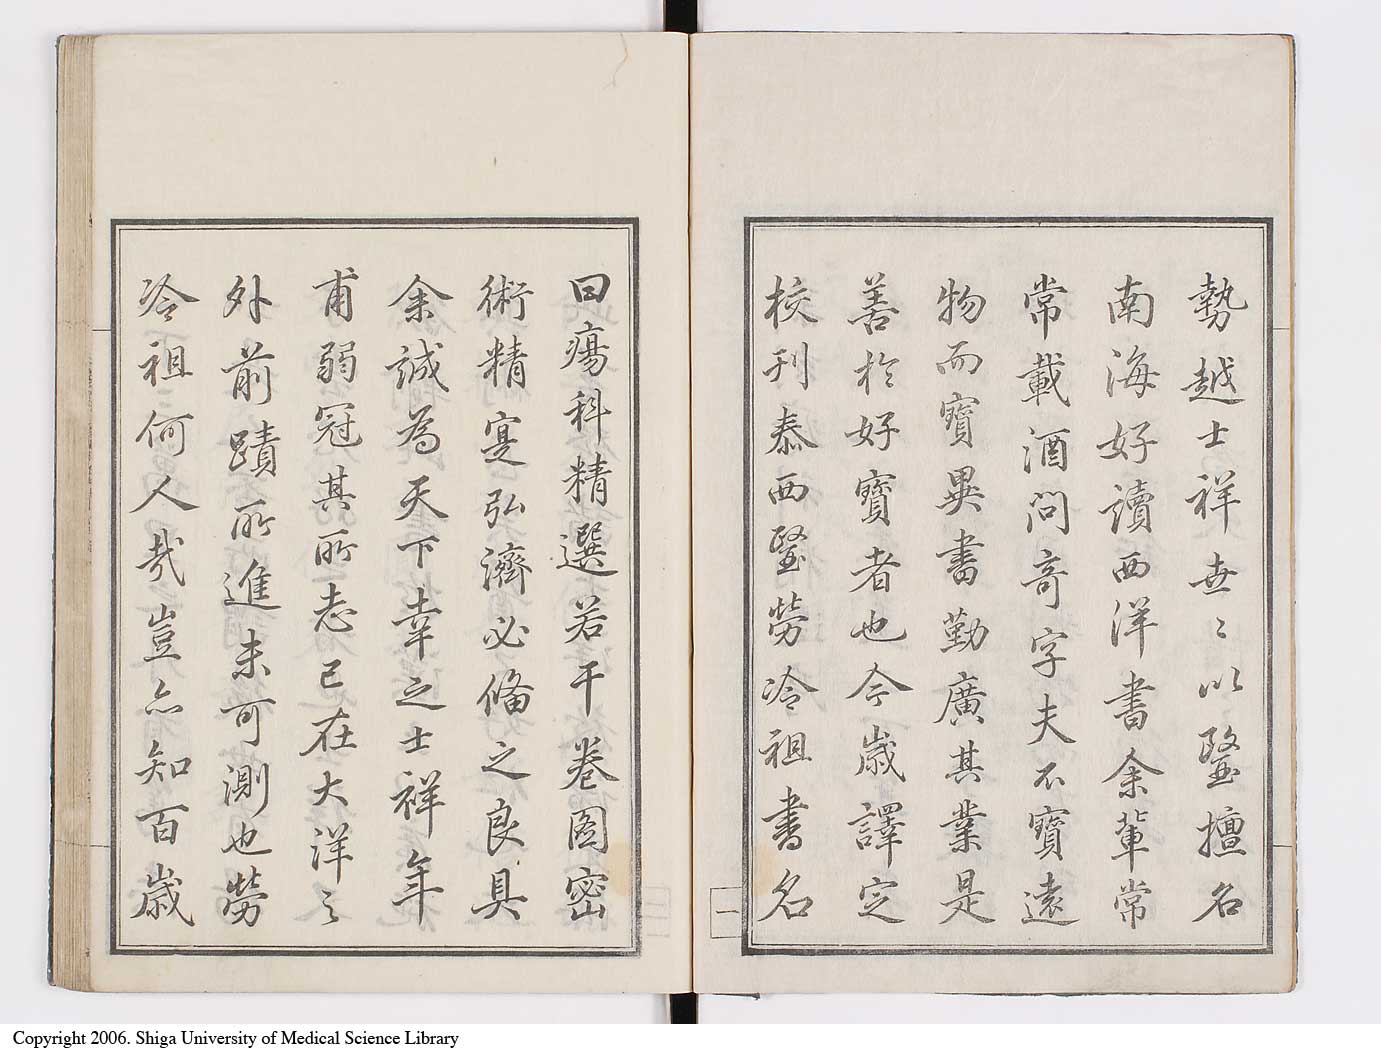 勢越士祥世〻以醫擅名
南海好讀西洋書余輩常
常載酒問奇字夫不寶遠
物而寶異書勤廣其業是
善於好寶者也今歲譯定
校刊泰西醫勞冷祖書名
一
曰瘍科精選若干卷圖密
術精寔弘濟必備之良具
余誠為天下幸之士祥年
甫弱冠其所志已在大洋之
外前蹟所進未可測也勞
冷祖〻何人哉豈亦知百歲
Copyright 2006. Shiga University of Medical Science Library